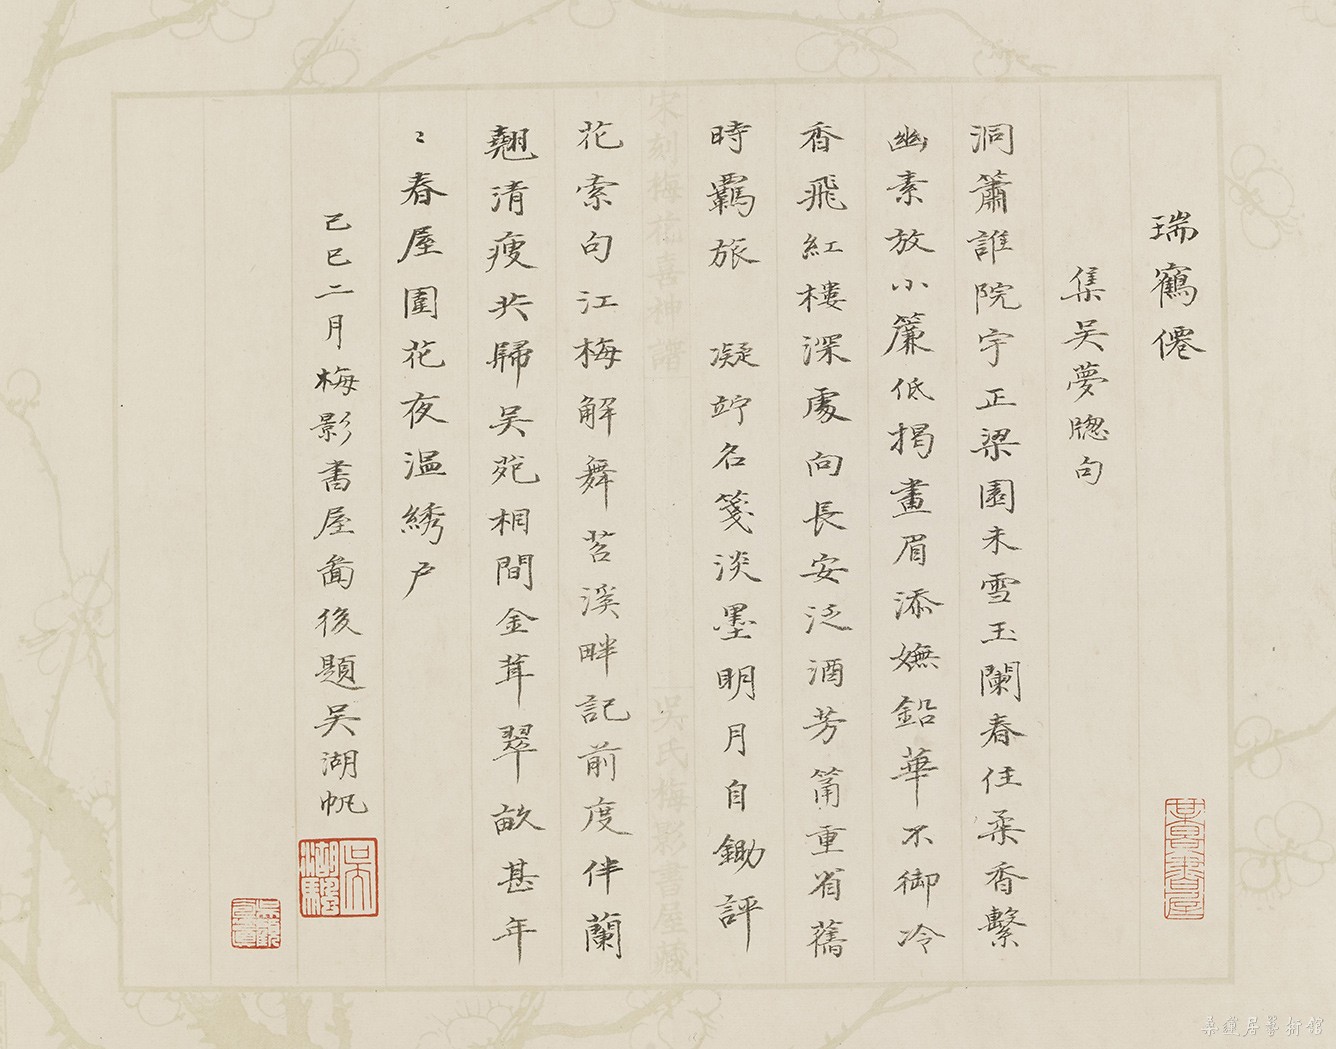 瑞鶴僊
集吴夢牕句
洞簫誰院宇正梁園未雪玉闌春住柔香繫
幽素放小簾低揭畫眉添嫵鉛華不御冷
香飛紅樓深處向長安泛酒芳筩重省舊
時羈旅 凝竚名箋淡墨明月自鋤評
花索句江梅解舞苕溪畔記前度伴蘭
翹清瘦共歸吴苑相間金茸翠畝甚年
〻春屋圍花夜温綉户
己巳二月梅影書屋啚後題吴湖帆
宋刻梅花喜神譜
吳氏梅影書屋藏
吴湖颿
桑蓮居藝術館